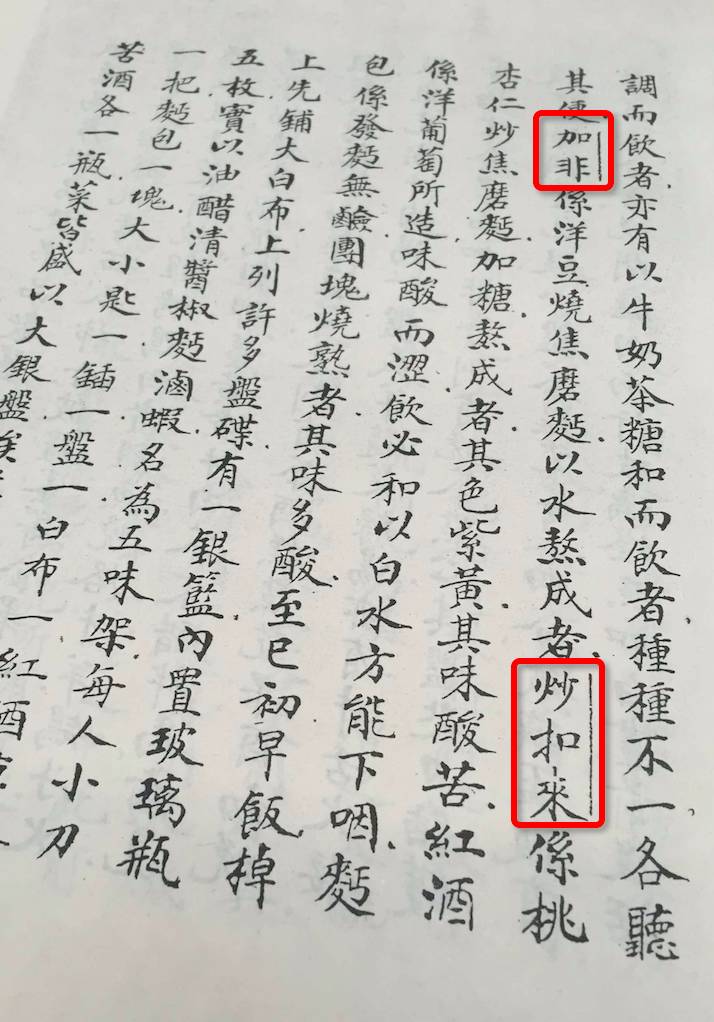 調而飲者亦有以牛奶茶糖和而飲者種種不一各聽
其便加非係洋豆燒焦磨麪以水熬成者炒扣來係桃
杏仁炒焦磨麪加糖熬成者其色紫黃其味酸苦紅酒
係洋葡萄所造味酸而澀飲必和以白水方能下咽麪
包係發麪無鹼團塊燒熟者其味多酸至巳初早飯棹
上先鋪大白布上列許多盤碟有一銀籃內置玻璃瓶
五枚實以油醋清醬椒麪滷蝦名為五味架每人小刀
一把麪包一塊大小匙一鍤一盤一白布一紅酒
苦酒各一瓶菜皆盛以大銀盤